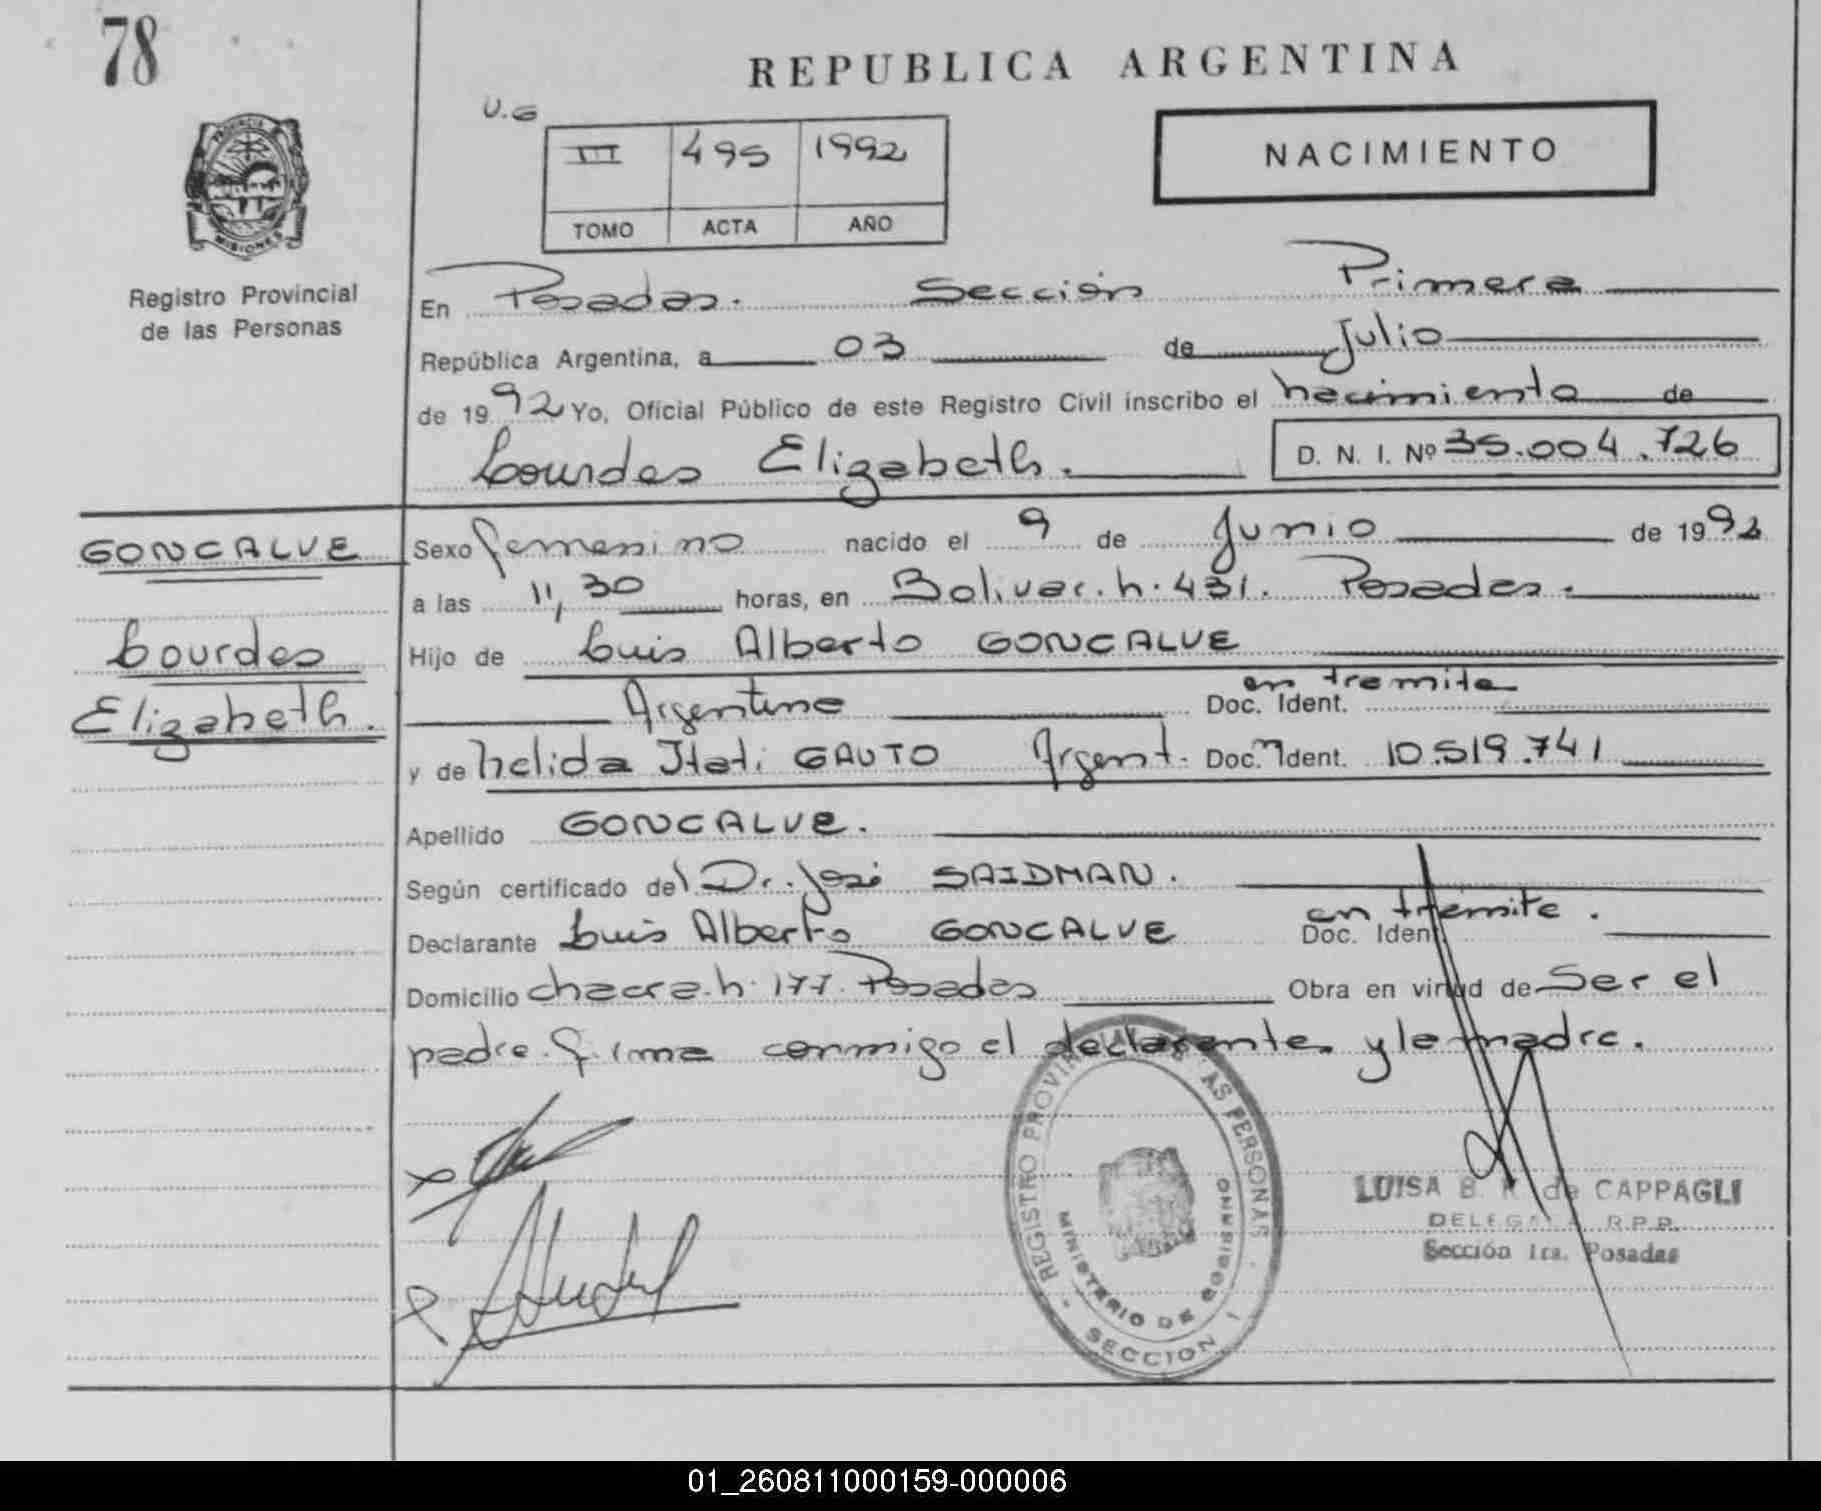 78
REPUBLICA ARGENTINA
U.G
III 495 1992
TOMO ACTA AÑO
NACIMIENTO
PROVINCIA
MISIONES
Registro Provincial
de las Personas
En Posadas. Sección Primera
República Argentina, a 03 de Julio
de 1992 Yo, Oficial Público de este Registro Civil inscribo el nacimiento de
Lourdes Elizabeth. D. N. I. Nº 35.004.726
GONCALVE
Lourdes
Elizabeth.
Sexo femenino nacido el 9 de Junio de 1992
a las 11,30 horas, en Bolivar. n. 431. Posadas.
Hijo de Luis Alberto GONCALVE
Argentino Doc. Ident. en tramite
y de Nelida Itati GAUTO Argent. Doc. Ident. 10.519.741
Apellido GONCALVE.
Según certificado del Dr. José SAIDMAN.
Declarante Luis Alberto GONCALVE Doc. Ident. en tramite.
Domicilio chacra. n. 177. Posadas Obra en virtud de Ser el
padre. firma conmigo el declarante y la madre.
REGISTRO PROVINCIAL DE LAS PERSONAS
MINISTERIO DE GOBIERNO
SECCION 1
LUISA B. de CAPPAGLI
DELEGADA R.P.P.
Sección 1ra. Posadas
01_260811000159-000006